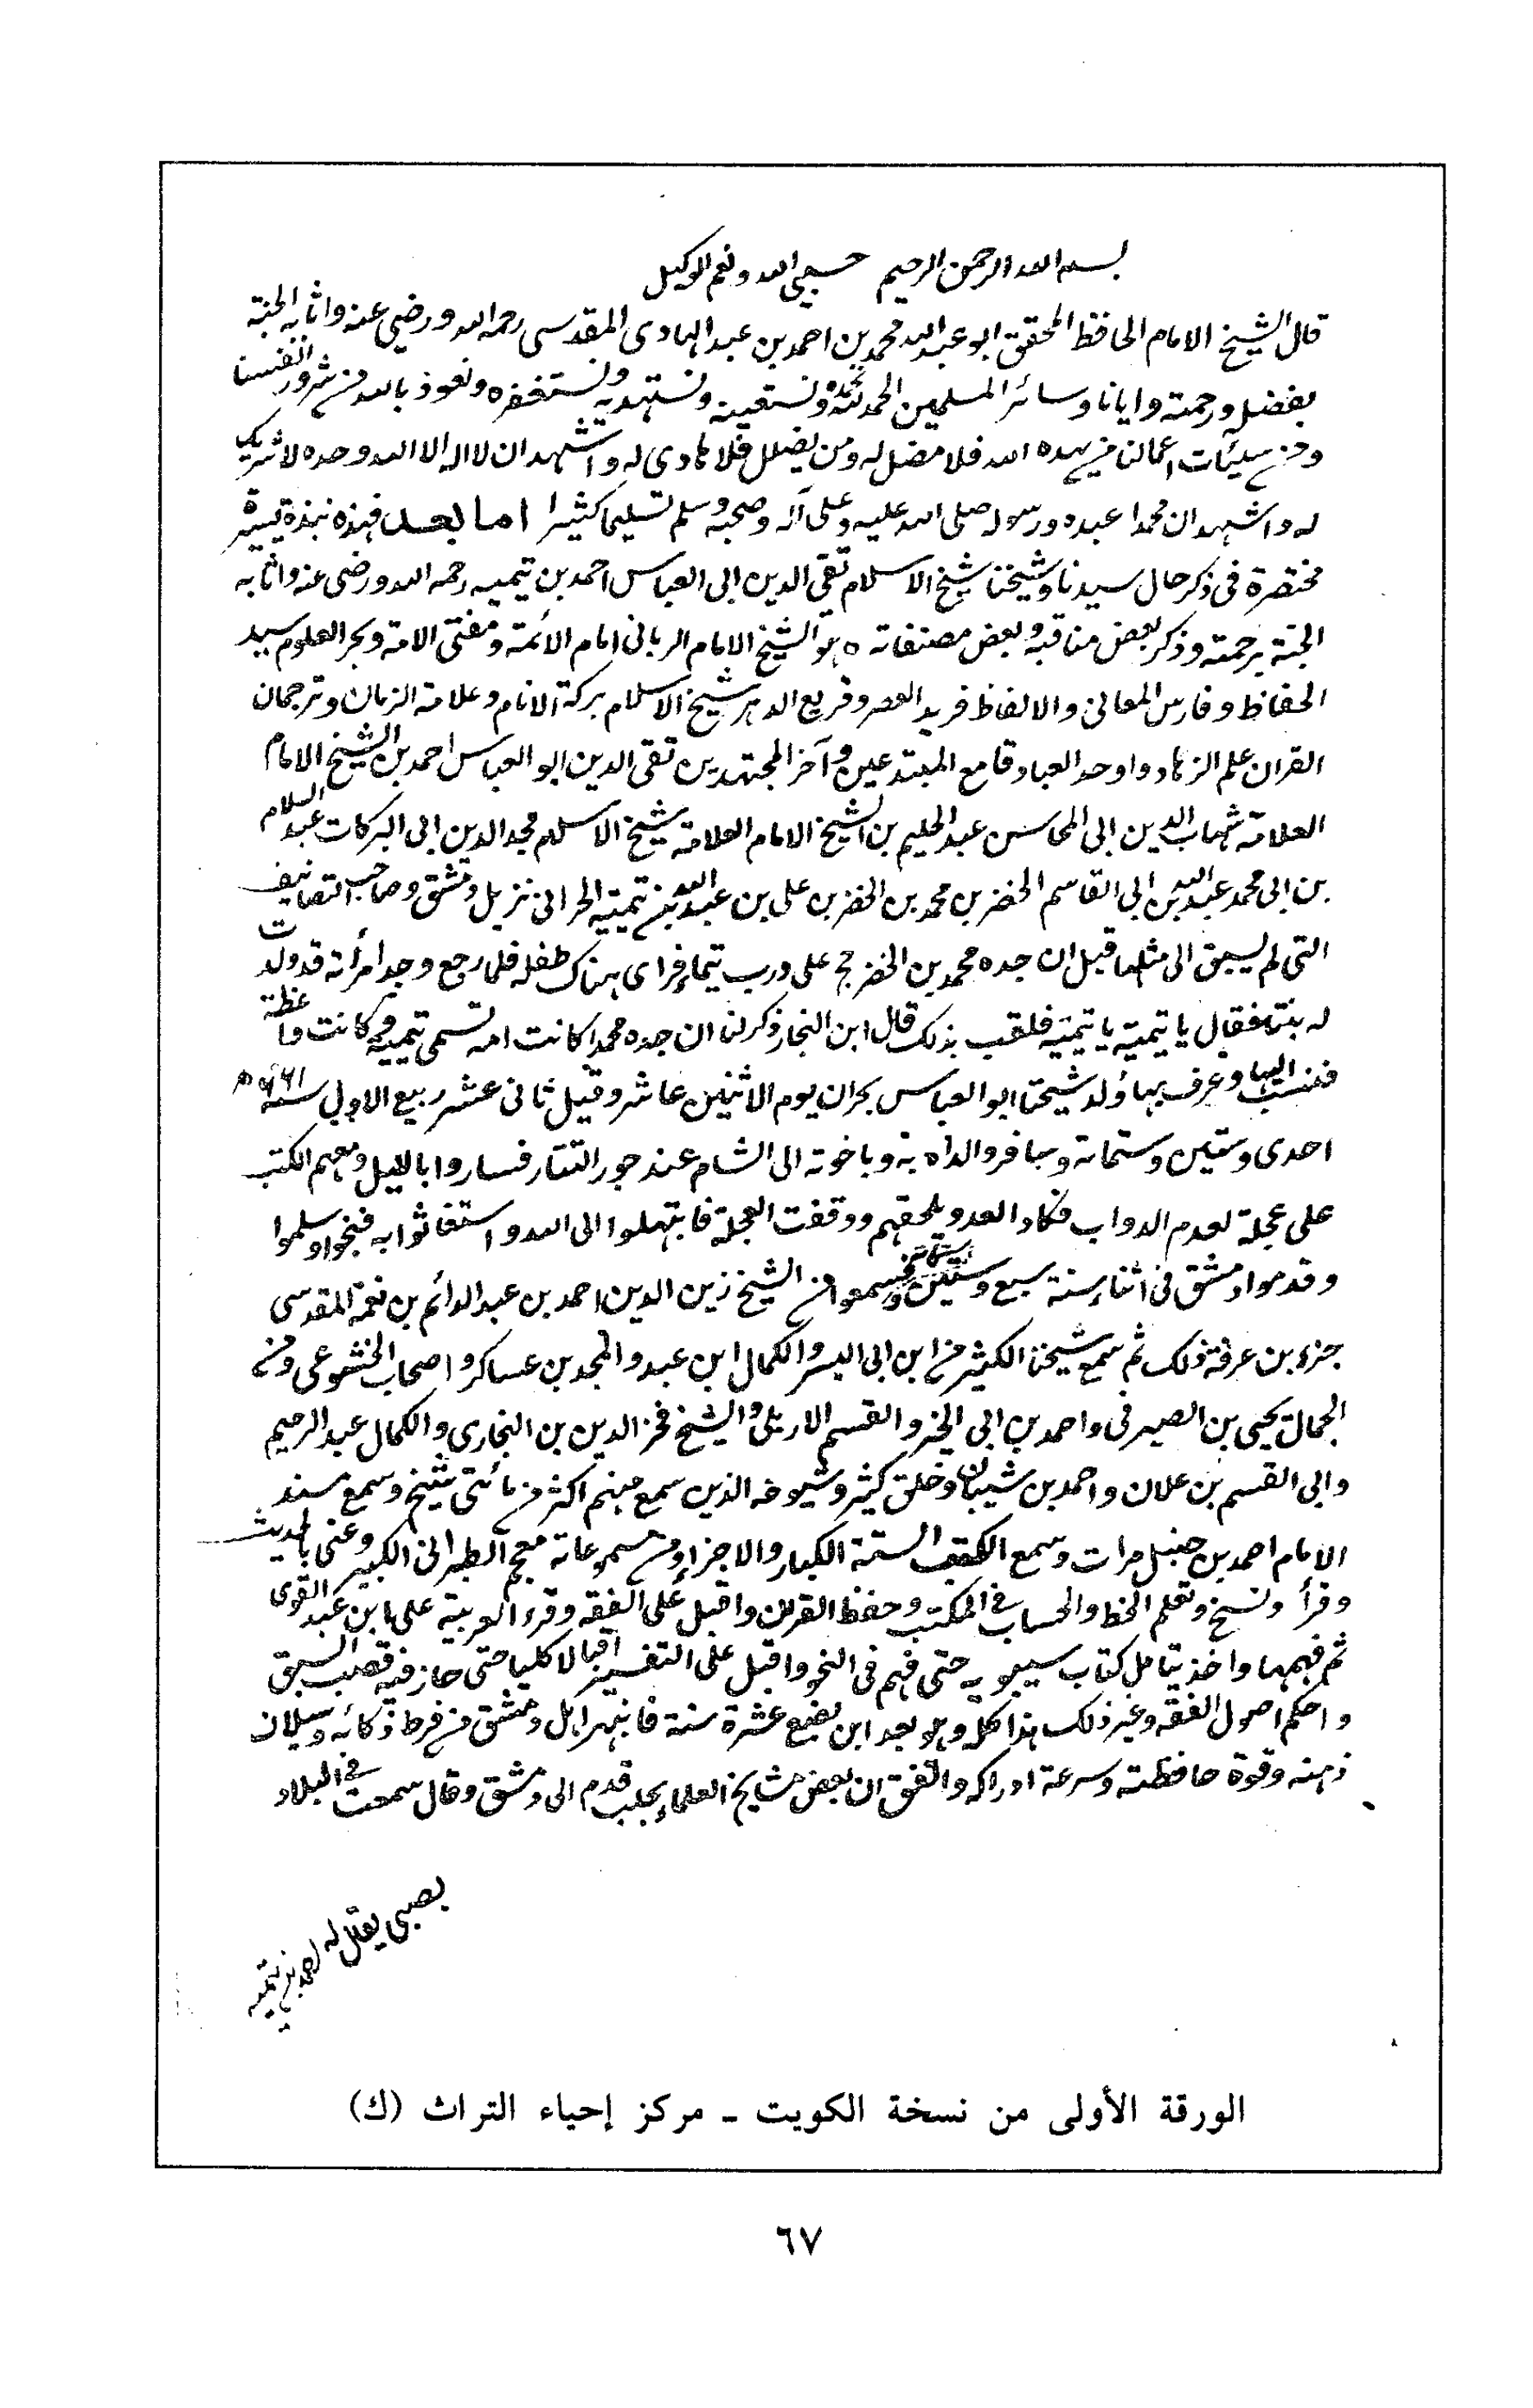 بسم الله الرحمن الرحيم حسبي الله ونعم الوكيل
قال الشيخ الامام الحافظ المحقق ابو عبد الله محمد بن احمد بن عبد الهادى المقدسى رحمه الله ورضي عنه واثابه الجنة
بفضل ورحمته وايانا وسائر المسلمين الحمد لله نحمده ونستعينه ونستهديه ونستغفره ونعوذ بالله من شرور انفسنا
ومن سيئات اعمالنا من يهده الله فلا مضل له ومن يضلل فلا هادى له واشهد ان لا اله الا الله وحده لا شريك
له واشهد ان محمدا عبده ورسوله صلى الله عليه وعلى آله وصحبه وسلم تسليما كثيرا اما بعد فهذه نبذة يسيرة
مختصرة فى ذكر حال سيدنا وشيخنا شيخ الاسلام تقى الدين ابى العباس احمد بن تيميه رحمه الله ورضى عنه واثابه
الجنة برحمته وذكر بعض مناقبه وبعض مصنفاته ه هو الشيخ الامام الربانى امام الأئمة ومفتى الامة وبحر العلوم سيد
الحفاظ وفارس المعانى والالفاظ فريد العصر وقريع الدهر شيخ الاسلام بركة الانام وعلامة الزمان وترجمان
القران علم الزهاد واوحد العباد قامع المبتدعين وآخر المجتهدين تقى الدين ابو العباس احمد بن الشيخ الامام
العلامة شهاب الدين ابى المحاسن عبد الحليم بن الشيخ الامام العلامة شيخ الاسلام مجد الدين ابى البركات عبد السلام
بن ابى محمد عبد الله بن ابى القاسم الخضر بن محمد بن الخضر بن على بن عبد الله بن تيمية الحرانى نزيل دمشق وصاحب التصانيف
التى لم يسبق الى مثلها قيل ان جده محمد بن الخضر حج على درب تيماء فراى هناك طفلة فلما رجع وجد امرأته قد ولدت
له بنتا فقال يا تيمية يا تيمية فلقب بذلك قال ابن النجار ذكر لنا ان جده محمدا كانت امه تسمى تيميه وكانت واعظة
فنسب اليها وعرف بها ولد شيخنا ابو العباس بحران يوم الاثنين عاشر وقيل ثانى عشر ربيع الاول سنة ٦٦١ ه
احدى وستين وستمائة وسافر والداه به وباخوته الى الشام عند جور التتار فساروا بالليل ومعهم الكتب
على عجلة لعدم الدواب فكاد العدو يلحقهم ووقفت العجلة فابتهلوا الى الله واستغاثوا به فنجوا وسلموا
وقدموا دمشق فى اثناء سنة سبع وستين وستمائة فسمعوا من الشيخ زين الدين احمد بن عبد الدائم بن نعمة المقدسى
جزء بن عرفة ذلك ثم سمع شيخنا الكثير من ابن ابى اليسر والكمال ابن عبد والمجد بن عساكر واصحاب الخشوعى ومن
الجمال يحيى بن الصيرفى واحمد بن ابى الخير والقسم الاربلى والشيخ فخر الدين بن البخارى والكمال عبد الرحيم
وابى القسم بن علان واحمد بن شيبان وخلق كثير وشيوخه الذين سمع منهم اكثر من مائتى شيخ وسمع مسند
الامام احمد بن حنبل مرات وسمع الكتب الستة الكبار والاجزاء ومن مسموعاته معجم الطبرانى الكبير وعنى بالحديث
وقرأ ونسخ وتعلم الخط والحساب فى المكتب وحفظ القران واقبل على الفقه وقرء العربية على ابن عبد القوى
ثم فهمها واخذ يتامل كتاب سيبويه حتى فهم فى النحو واقبل على التفسير اقبالا كليا حتى حاز فيه قصب السبق
واحكم اصول الفقه وغير ذلك هذا كله وهو بعد ابن بضع عشرة سنة فانبهر اهل دمشق من فرط ذكائه وسيلان
ذهنه وقوة حافظته وسرعة ادراكه واتفق ان بعض مشايخ العلماء بحلب قدم الى دمشق وقال سمعت فى البلاد
بصبى يقال له احمد بن تيميه
الورقة الأولى من نسخة الكويت - مركز إحياء التراث (ك)
٦٧